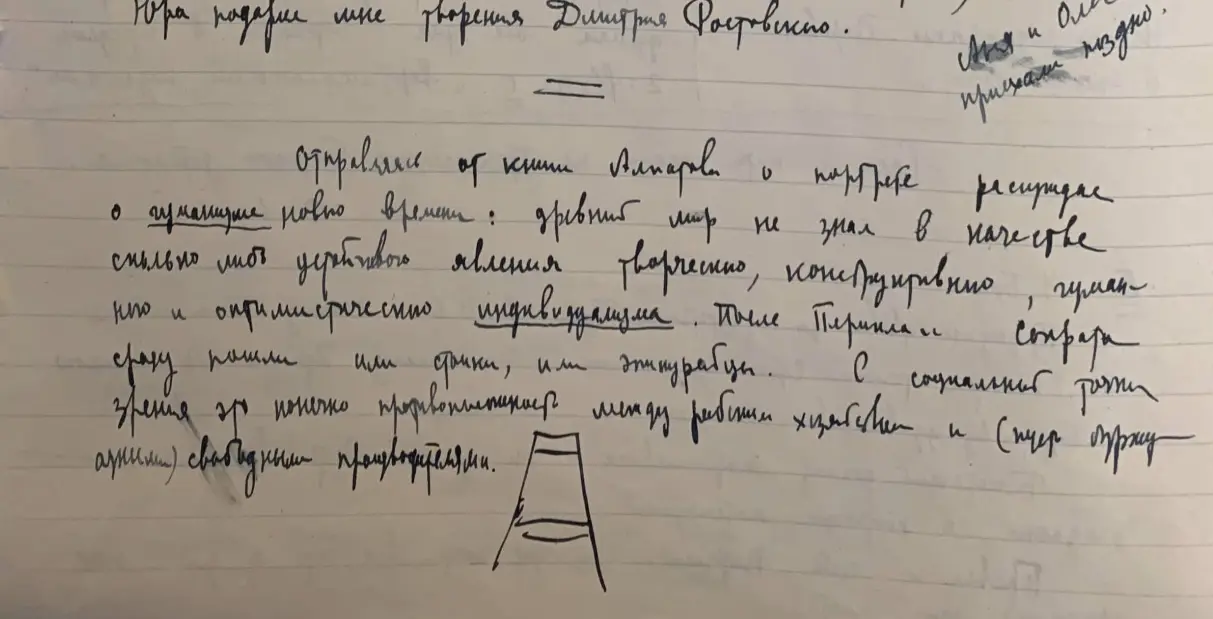 Юра подарил мне творения Дмитрия Ростовского.
Аня и Оля
приехали поздно.
Отправляясь от книги Алпатова о портрете рассуждаю
о гуманизме нового времени: древний мир не знал в качестве
сколько либо устойчивого явления творческого, конструктивного, гуман-
ного и оптимистического индивидуализма. После Перикла и Сократа
сразу пошли или стоики, или эпикурейцы. С социальной точки
зрения это конечно противоположность между рабским хозяйством и (пусть буржу-
азными) свободными производителями.